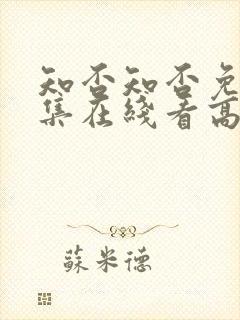 知否知否免
集在綫看高
蘇米德